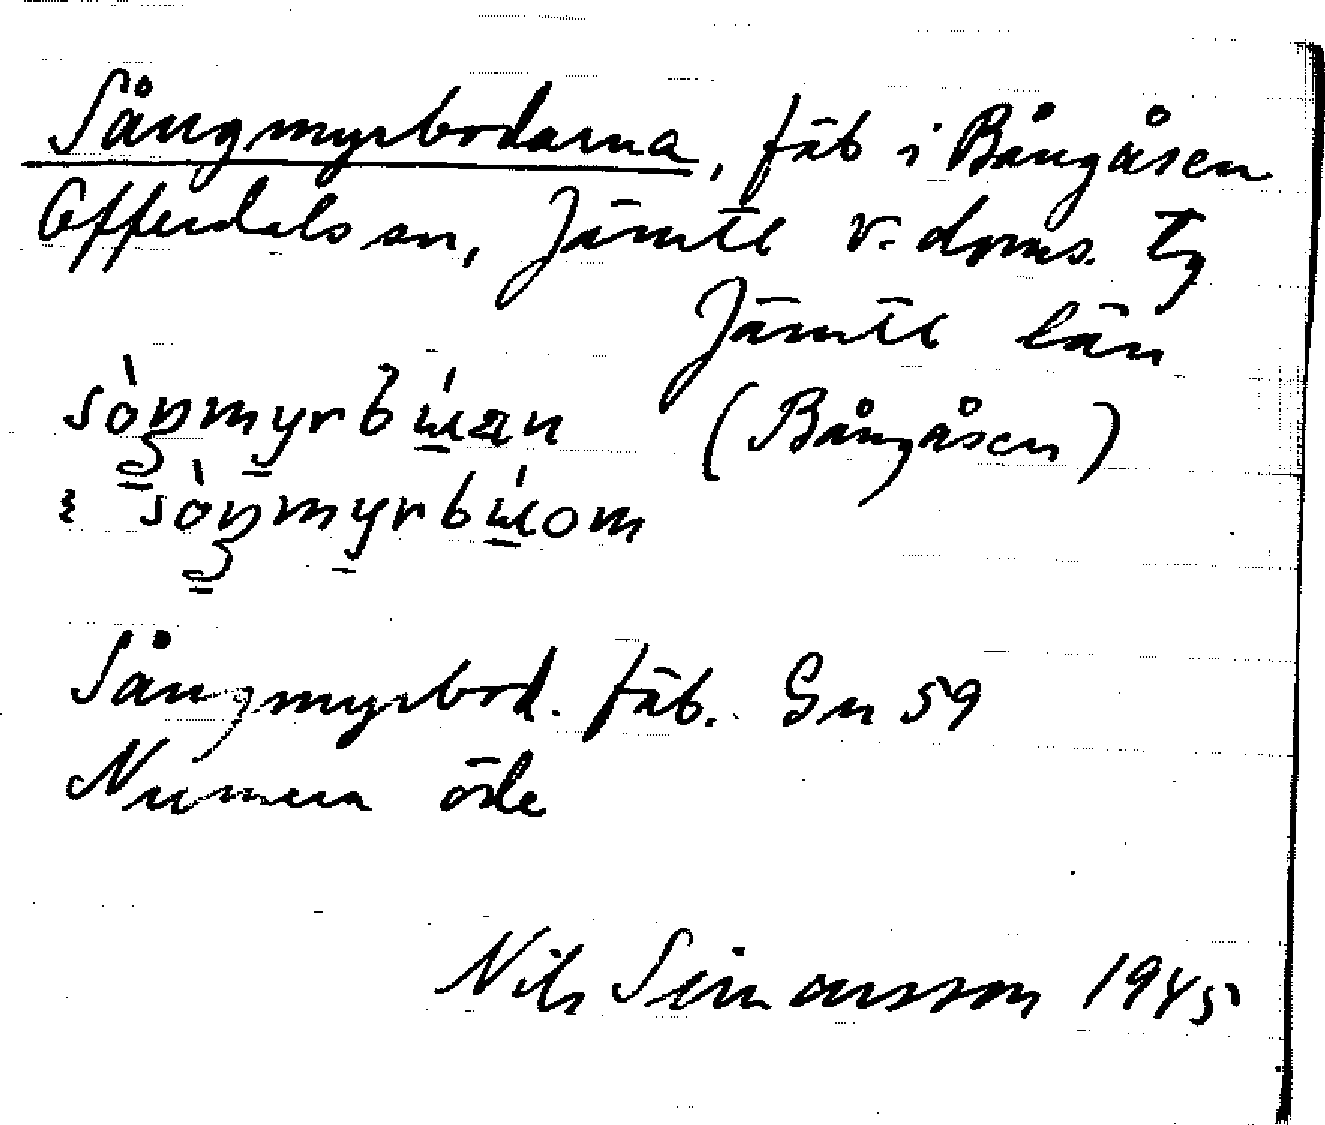 Sångmyrbodarna, fäb i Bångåsen
Offerdals sn, Jämtl v. doms. Tg
Jämtl län
sòŋmyrbɯ́an (Bångåsen)
i sòŋmyrbɯ́om
Sångmyrbod. fäb. Gn 59
Numera öde
Nils Simonsson 1945